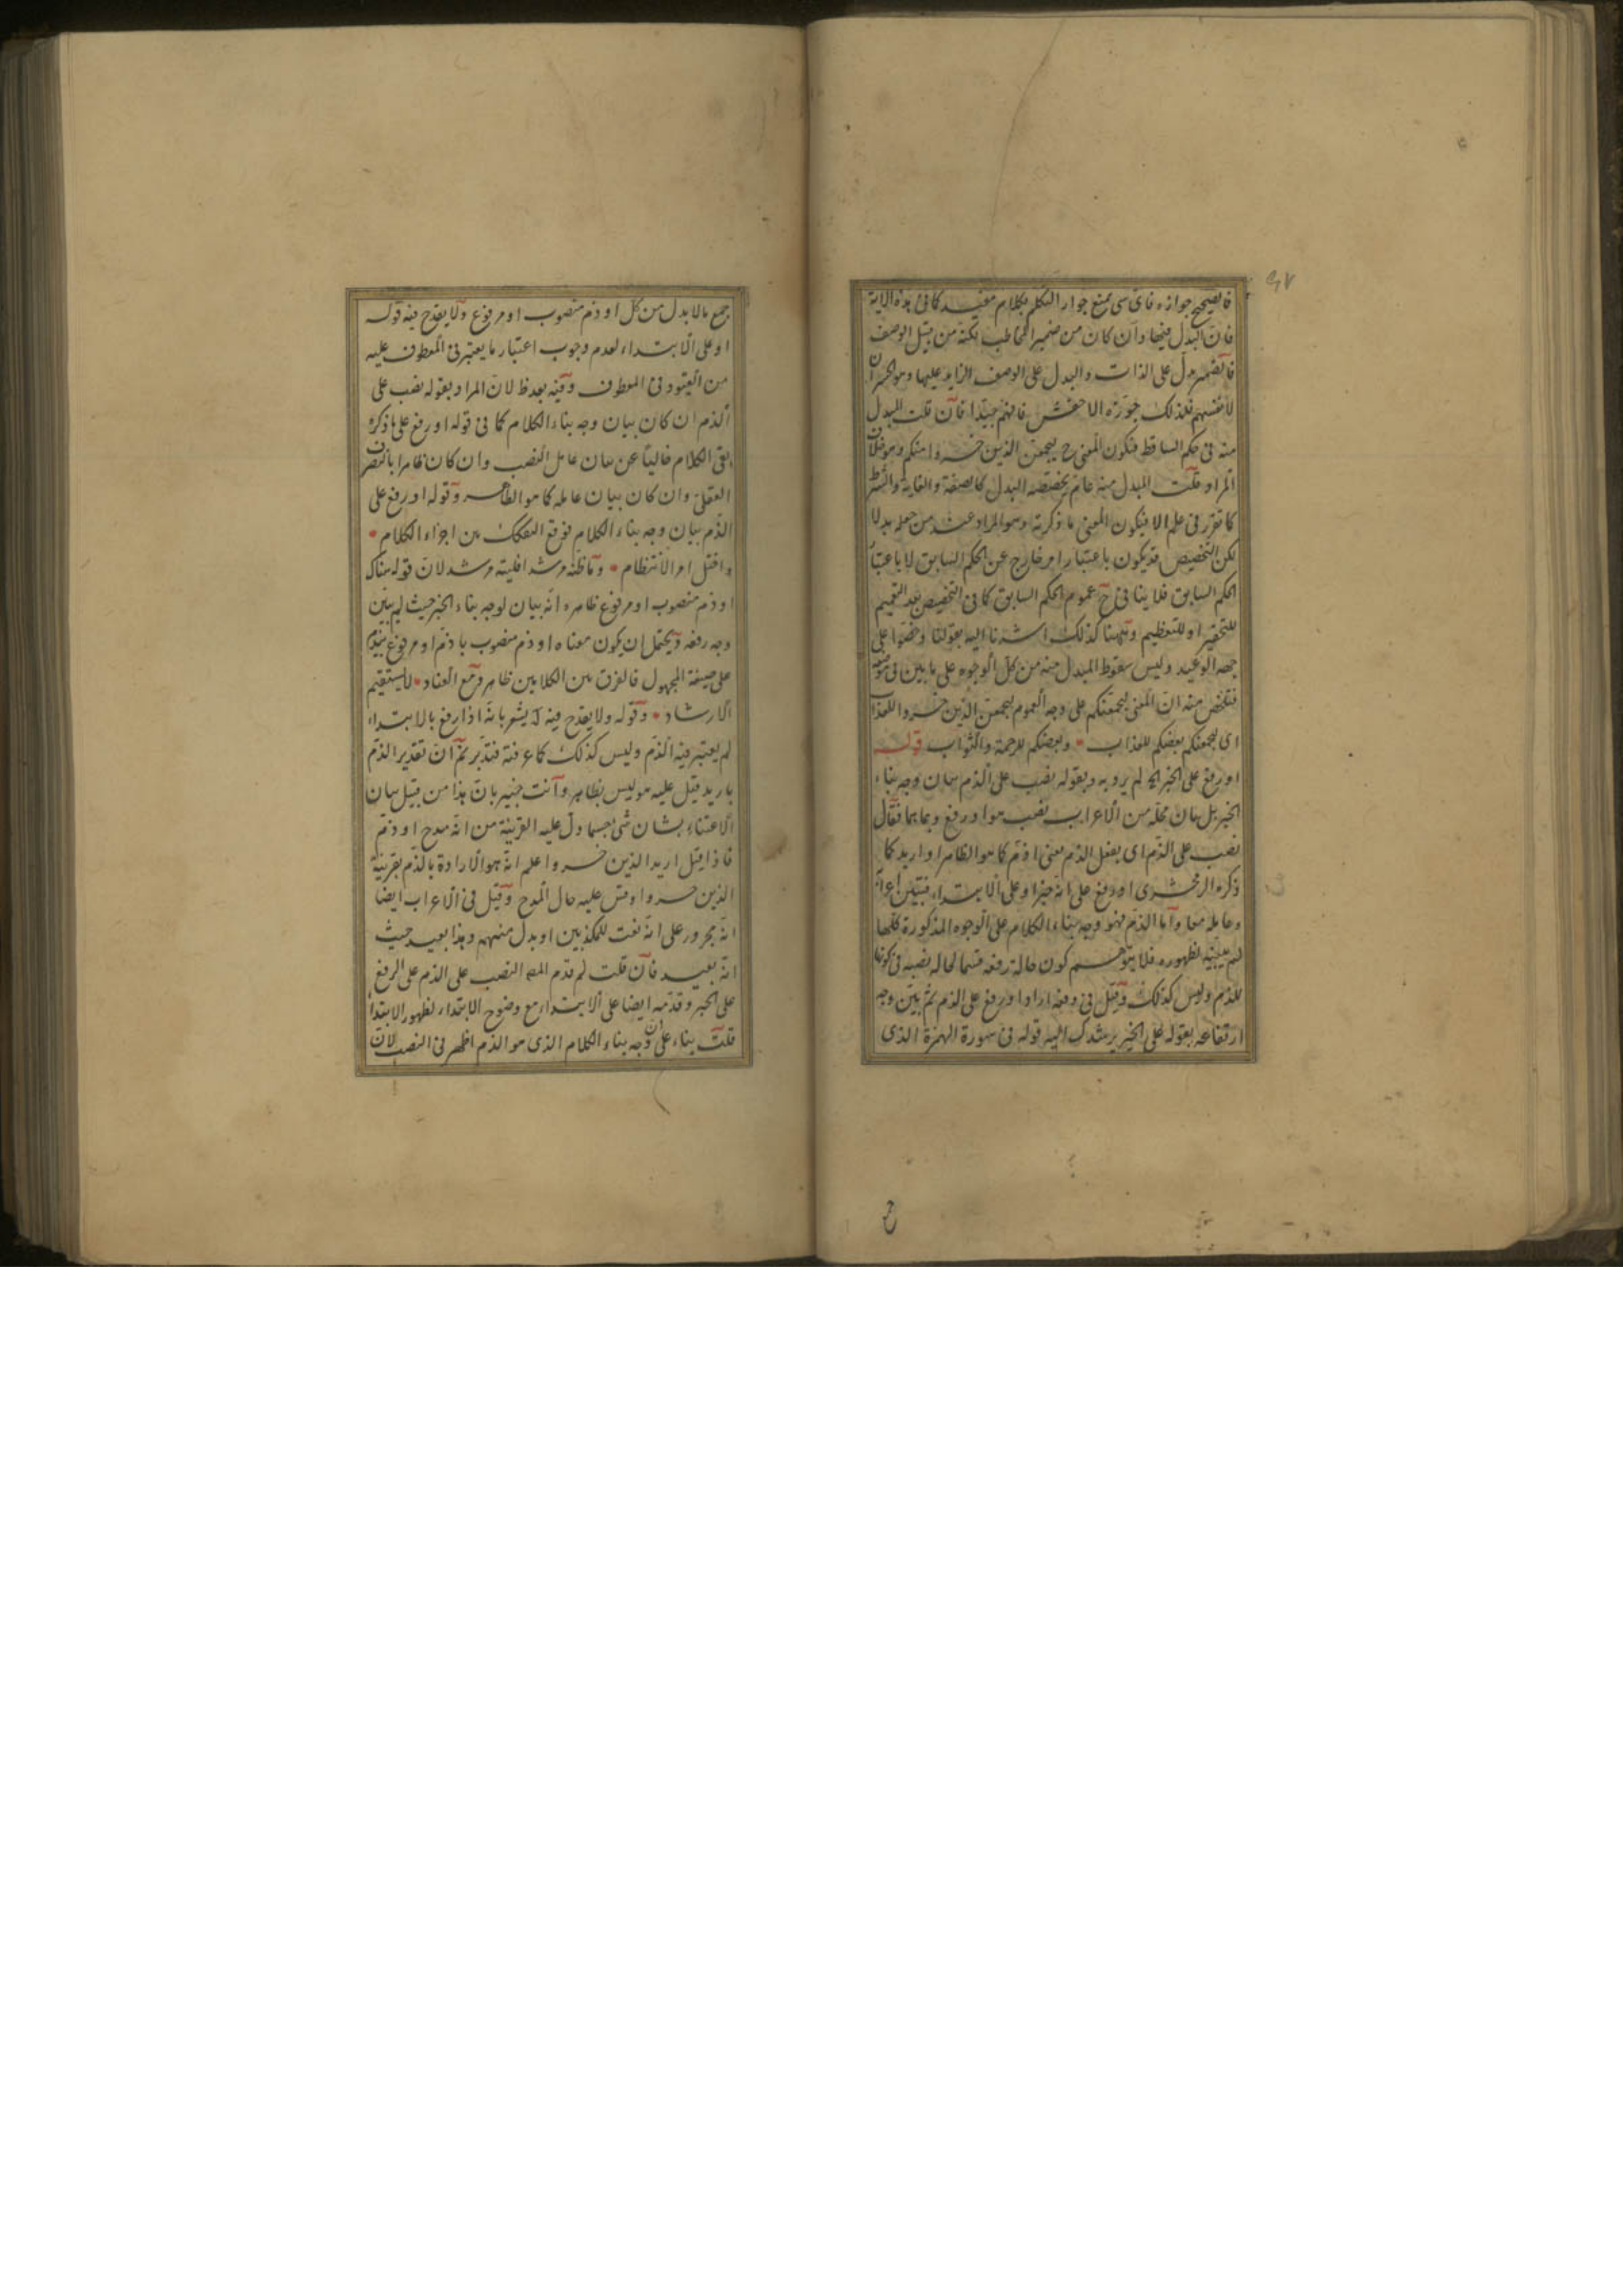 ٦٧
فما يصحح جوازه فاي شي يمنع جواز التكلم بكلام مفيد كما في هذه الاية
فان البدل فيها وان كان من ضمير المخاطب لكنه من قبيل الوصف
فالضمير يدل على الذات والبدل على الوصف الزايد عليها وهو الخسران
لانفسهم فلذلك جوزه الاخفش فافهم جيدا فان قلت المبدل
منه في حكم الساقط فيكون المعنى ح ليجمعن الذين خسروا منكم وهو خلاف
المراد قلت المبدل منه عام يخصصه البدل كالصفة والغاية والشرط
كما تقرر في علم الا فيكون المعنى ما ذكرته وهو المراد عند من جعله بدلا
لكن التخصيص قد يكون باعتبار امر خارج عن الحكم السابق لا باعتبار
الحكم السابق فلا ينافي ح عموم الحكم السابق كما في التخصيص بعد التعميم
للتحقير او للتعظيم وههنا كذلك اشرنا اليه بقولنا وخصوا على
جهة الوعيد وليس سقوط المبدل منه من كل الوجوه على ما بين في موضعه
فتلخص منه ان المعنى ليجمعنكم على وجه العموم ليجمعن الذين خسروا للعذاب
اى ليجمعنكم بعضكم للعذاب وبعضكم للرحمة والثواب قوله
او رفع على الخبر الخ لم يرد به وبقوله نصب على الذم بيان وجه بناء
الخبر بل بيان محله من الاعراب نصب هو او رفع وما بهما فقال
نصب على الذم اى بفعل الذم معنى اذم كما هو الظاهر او اريد كما
ذكره الزمخشرى او رفع على انه خبر او على الابتداء فتبين اعرابه
وعامله معا واما الذم فهو وجه بناء الكلام على الوجوه المذكورة كلها
لم يبينه لظهوره فلا يتوهم كون حالة رفعه قسما لحالة نصبه في كونها
للذم وليس كذلك وقيل في دفعه اراد او رفع على الذم ثم بين وجه
ارتفاعه بقوله على الخبر يرشدك اليه قوله في سورة الهمزة الذى
جمع مالا بدل من كل او ذم منصوب او مرفوع ولا يقدح فيه قوله
او على الابتداء لعدم وجوب اعتبار ما يعتبر في المعطوف عليه
من القيود في المعطوف وفيه بعد ظ لان المراد بقوله نصب على
الذم ان كان بيان وجه بناء الكلام كما في قوله او رفع على ما ذكره
بقى الكلام خاليا عن بيان عامل النصب وان كان ظاهرا بالتصرف
العقلى وان كان بيان عامله كما هو الظاهر وقوله او رفع على
الذم بيان وجه بناء الكلام فوقع التفكك بين اجزاء الكلام
واختل امر الانتظام وما ظنه مرشدا فليته مرشد لان قوله هناك
او ذم منصوب او مرفوع ظاهره انه بيان لوجه بناء الخبر حيث لم يبين
وجه رفعه ويحتمل ان يكون معناه او ذم منصوب باذم او مرفوع بيذم
على صيغة المجهول فالفرق بين الكلامين ظاهر ومع العناد لا يستقيم
الارشاد وقوله ولا يقدح فيه له يشعر بانه اذا رفع بالابتداء
لم يعتبر فيه الذم وليس كذلك كما عرفته فتدبر ثم ان تقدير الذم
باريد قيل عليه هو ليس بظاهر وانت خبير بان هذا من قبيل بيان
الاعتناء بشان شئ حسبما دل عليه القرينة من انه مدح او ذم
فاذا قيل اريد الذين خسروا علم انه هو الارادة بالذم بقرينة
الذين خسروا وقس عليه حال المدح وقيل في الاعراب ايضا
انه مجرور على انه نعت للمكذبين او بدل منهم وهذا بعيد حيث
انه بعيد فان قلت لم قدم المصـ النصب على الذم على الرفع
على الخبر وقدمه ايضا على الابتداء مع وضوح الابتداء لظهور الابتدا
قلت بناء على ان وجه بناء الكلام الذى هو الذم اظهر في النصب لان